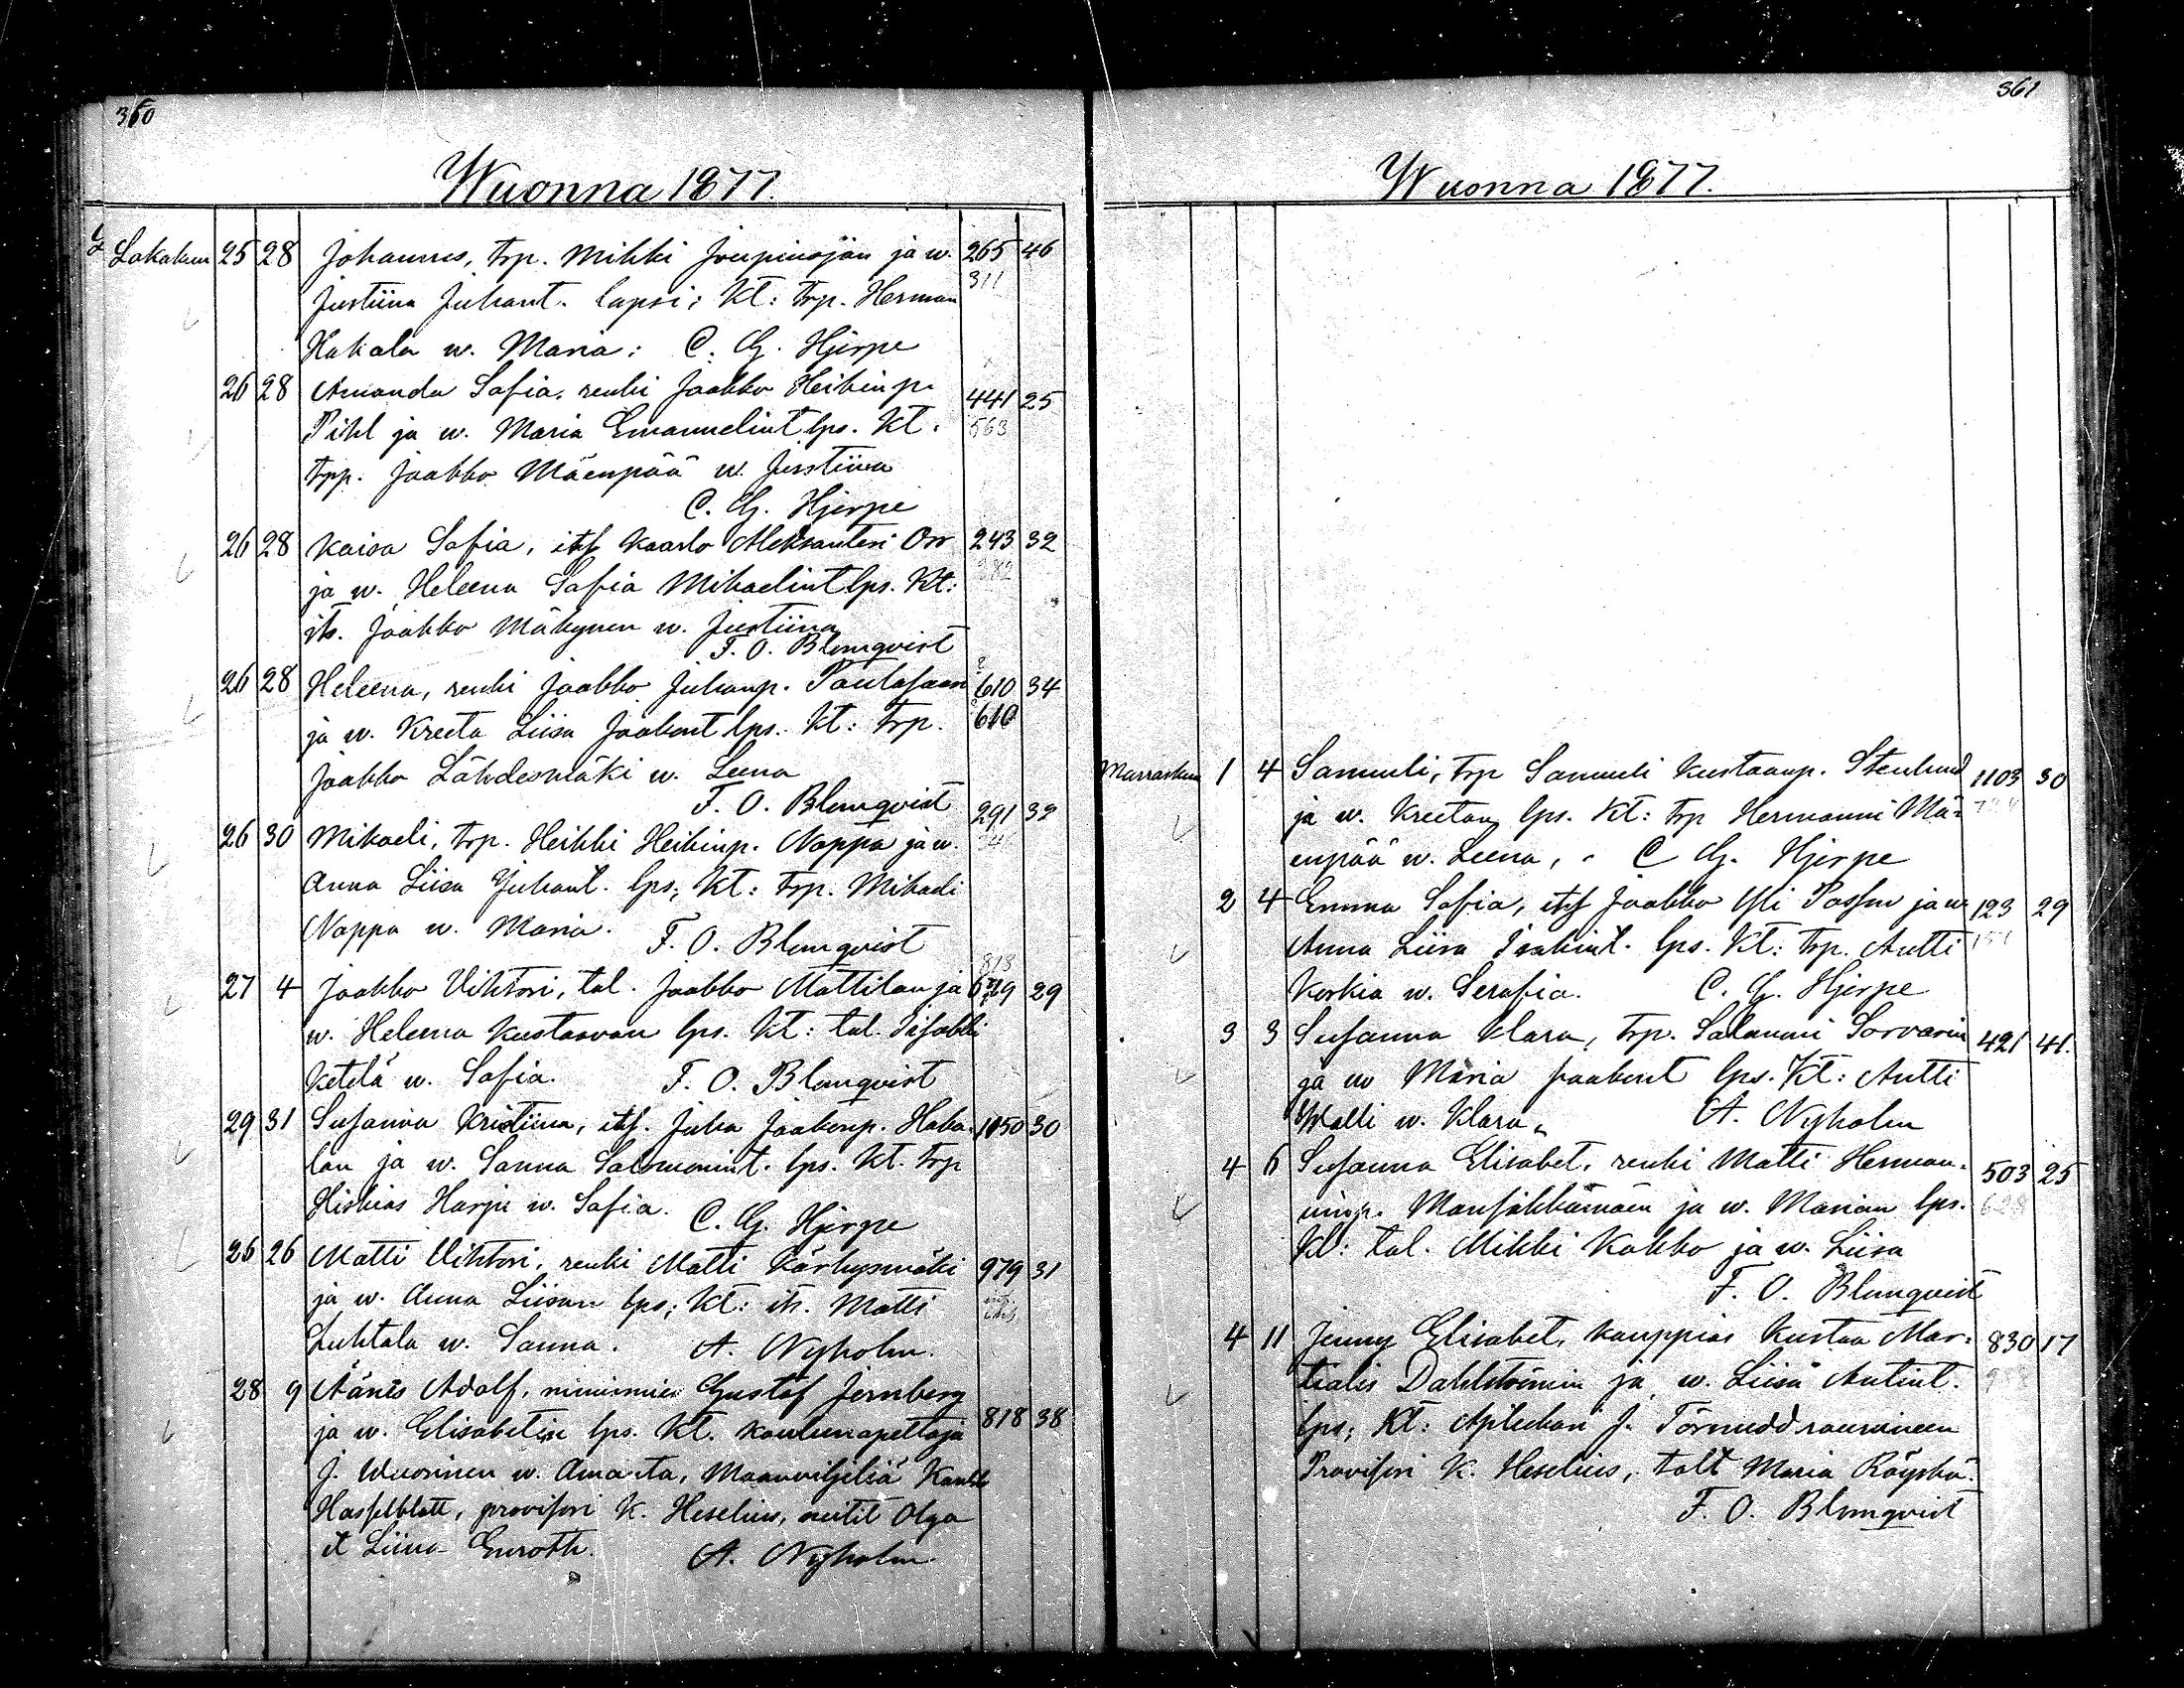 360
Wuonna 1877.
Lokakuu 25 28 Johannes, trp. Mikki Joupinojan ja w. 265 46
Justiina Juhant. lapsi; Kt: trp. Herman 311
Hakala w. Maria: C. G. Hjerpe
26 28 Amanda Sofia, renki Jaakko Heikinp. 441 25
Pihl ja w. Maria Emanuelint lps. Kt. 563
trp. Jaakko Mäenpää w. Justiina
C. G. Hjerpe
26 28 Kaisa Sofia, its Kaarlo Aleksanteri Orr 243 32
ja w. Heleena Sofia Mikaelint lps. Kt: 282
its. Jaakko Mäkynen w. Justiina
F. O. Blomqvist
26 28 Heleena, renki Jaakko Juhanp. 610 34
ja w. Kreeta Liisa Jaakont lps. Kt: trp. 610
Jaakko Lähdesmäki w. Leena
F. O. Blomqvist
26 30 Mikaeli, trp. Heikki Heikinp. Noppa ja w. 291 32
Anna Liisa Juhant. lps; Kt: trp. Mikaeli
Noppa w. Maria. F. O. Blomqvist
813
27 4 Jaakko Vihtori, tal. Jaakko Mattilan ja 29
w. Heleena Kustaavan lps. Kt: tal.
Ketelä w. Sofia. F. O. Blomqvist
29 31 Susanna Kristiina, its. Juha Jaakonp. Haka- 1050 30
lan ja w. Sanna Salomonint. lps. Kt. trp
Hiskias Harju w. Sofia. C. G. Hjerpe
26 26 Matti Vihtori, renki Matti Kärkysmäki 979 31
ja w. Anna Liisan lps; Kt: its. Matti
Luhtala w. Sanna. A. Nyholm.
28 9 Adolf, nimismies Gustaf Jernberg
ja w. Elisabetin lps. Kt. koulunopettaja 818 38
J. Wuorinen w. Amanta, Maanviljeliä
Hasselblatt, provisori K. Heselius, neitit Olga
et Liina Enroth. A. Nyholm
361
Wuonna 1877.
Marraskuu 1 4 Samueli, trp Samueli Kustaanp. Stenlund 1103 30
ja w. Kreetan lps. Kt: trp Hermanni Mä-
enpää w. Leena, C G. Hjerpe
2 4 Emma Sofia, its Jaakko Yli ja w. 123 29
Anna Liisa lps. Kt: trp. Antti
Korkia w. Serafia. C. G. Hjerpe
3 3 Susanna Klara, trp. Salomoni Sorvarin 421 41.
ja w Maria Jaakont lps. Kt: Antti
Walli w. Klara. A. Nyholm
4 6 Susanna Elisabet, renki Matti Herman- 503 25
ninp. Mansikkämäen ja w. Marian lps. 628
Kt: tal. Mikki Kakko ja w. Liisa
F. O. Blomqvist
4 11 Jenny Elisabet, kauppias Kustaa Mar- 830 17
tialis Dahlströmin ja w. Liisa Antint.
lps; Kt: Aptekari J. Törnudd rouvineen
Provisori K. Heselius, talt Maria Röyskä.
F. O. Blomqvist